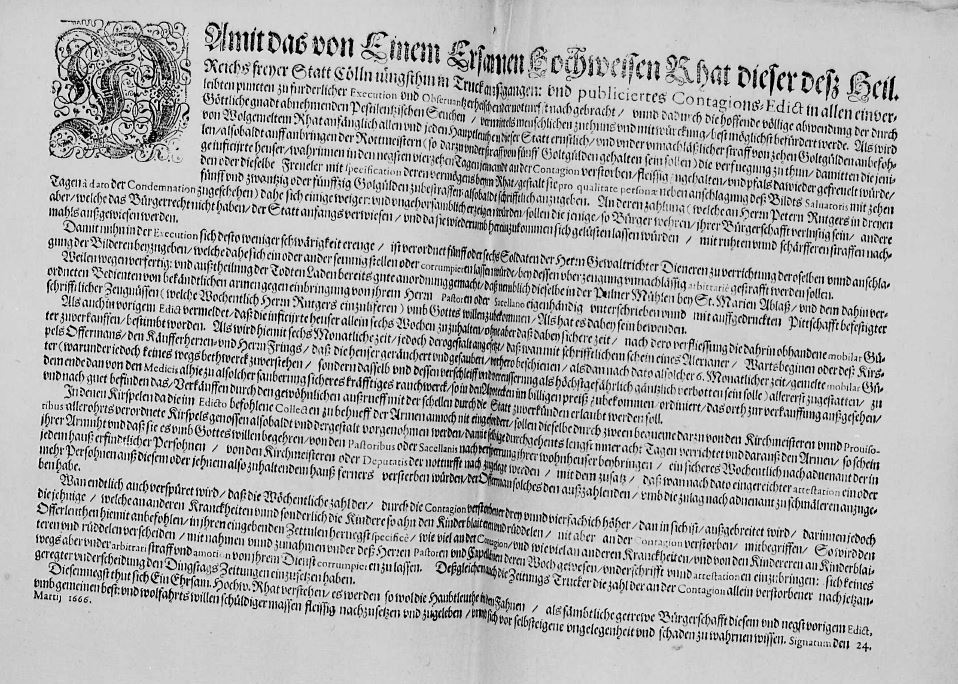 DAmit das von Einem Ersamen Hochweisen Rhat dieser deß Heil.
Reichs freyer Statt Cölln jüngsthin in Truck außgangen: und publiciertes Contagions-Edict in allen einver-
leibten puncten zu fürderlicher Execution und Observantz erheischender notturft nachgebracht / unnd dadurch die hoffende völlige abwendung der durch
Göttliche gnad abnehmenden Pestilentzischen Seuchen / vermittels menschlichen zuthuns und mitwürckung / best möglichst befürdert werde. Als wird
von Wolgemeltem Rhat anfänglich allen und jeden Haupleuthen dieser Statt ernstlich / und under unnachläßlicher straff von zehen Goltgülden anbefoh-
len / alsobaldt auff anbringen der Rottmeistern (so darzu under straff von fünff Goltgülden gehalten sein sollen) die verfuegung zu thun / damit den die jeni-
ge inficirte heuser / wahrinnen in den negsten vierzehen Tagen jemandt an der Contagion verstorben / fleissig zugehalten / und pfals dawieder gefreuelt würde /
den oder dieselbe Freueler mit specification deren vermögens beym Rhat / gestalt sie pro qualitate personæ neben anschlagung deß Bildts Salvatoris mit zehen
fünff und zwantzig oder fünffzig Golgülden zubestraffen / alsobaldt schrifftlich anzugeben. An deren zahlung (welche an Herrn Petern Rutgers in dreyen
Tagen à dato der Condemnation zugeschehen) dahe sich einige weiger: und ungehorsamblich erzeigen würden / sollen die jenige / so Bürger wehren / ihrer Bürgerschafft verlustig sein / andere
aber / welche das Bürgerrecht nicht haben / der Statt anfangs verwiesen / und da sie wiederumb herein zukommen sich gelüsten lassen würden / mit ruhten unnd schärfferen straffen nach-
mahls außgewiesen werden.
Damit nuhn in der Execution sich desto weniger schwärigkeit erenge / ist verordnet fünff oder sechs Soldaten der Herrn Gewaltrichter Dieneren zu verrichtung deroselben unnd anschla-
gung der Bilderen beyzugeben / welche dahe sich ein oder ander seumig stellen oder corrumpieren lassen würde / bey dessen uberzeugung unnachlässig arbitrariè gestrafft werden sollen.
Weilen wegen verfertig: und außtheilung der Todten Laden bereits gute anordnung gemacht / daß nemblich dieselbe in der Pulner Mühlen bey St. Marien Ablaß / und dem dahin ver-
ordneten Bedienten von bekäntlichen armen gegen einbringung von ihrem Herrn Pastoren oder Sacellano eigenhändig unterschrieben unnd mit auffgedruckten Pittschafft befestigter
schrifftlicher Zeugnüssen (welche Wochentlich Herrn Rutgers einzulifferen) umb Gottes willen zubekommen / Als hat es dabey sein bewenden.
Als auch in vorigem Edict vermeldet / daß die inficirte heuser allein sechs Wochen zuzuhalten / ohne aber daß daben sichere zeit / nach dero verfliessung die dahrin obhandene mobilar Gü-
ter zuverkauffen / bestimbt worden. Als wird hiemit sechs Monatliche zeit / jedoch dergestalt angesetzt / daß wan mit schrifftlichem schein eines Alexianer / Wartsbeginen oder deß Kirs-
pels Offermans / den Käufferherren und Herrn Frings / daß die henser geräuchert und gesaubert / vorhero beschienen / als dan nach dato alsolcher 6. Monatlicher zeit / gemelte mobilar Gü-
ter (warunder jedoch keines wegs bethwerck zuverstehen / sondern dasselb und dessen verschleiß und veräusserung als höchstgefährlich gäntzlich verbotten sein solle) allererst zugestatten / zu
dem ende dan von den Medicis alhie zu alsolcher sauberung sicheres kräfftiges rauchwerck / so in den Apotecken umb billigen preiß zubekommen / ordiniert / das orth zur verkauffung außgesehen /
und nach guet befinden das / Verkäuffen durch den gewöhnlichen außrueff mit der schellen durch die Statt zuverkünden erlaubt worden soll.
In denen Kirspelen da die im Edicto befohlene Collecten zu behueff der Armen annoch nit eingefordert / sollen dieselbe durch zween bequeme darzu von den Kirchmeisteren unnd Proviso-
ribus allerorths verordnete Kirspels genossen alsobaldt und dergestalt vorgenohmen werden / damit selbige durchgehents lengst inner acht Tagen verrichtet und darauß den Armen / so schein
ihrer Armuht und daß sie es umb Gottes willen begehren / von den Pastoribus oder Sacellanis nach verspeerung ihrer wohnheuser beybringen / ein sicheres Wochentlich nach adnenant der in
jedem hauß erfindtlicher Persohnen / von den Kirchmeisteren oder Deputatis der notturfft nach zugelegt werden / mit dem zusatz / daß wan nach dato eingereichter attestation ein oder
mehr Persohnen auß diesem oder jehnem also zuhaltendem hauß ferners verstorben würden / der Offerman solches den außzahlenden / umb die zulag nach adnenant zuschmäleren anzuge-
ben habe.
Wan endlich auch verspüret wird / daß die Wöchentliche zahl der / durch die Contagion verstorbener drey unnd vierfach ich höher / dan in sich ist / außgebreitet wird / darinnen jedoch
die jehnige / welche an anderen Kranckheiten unnd sonderlich die Kindere so ahn den Kinderblaiteren und rüddelen / mit aber an der Contagion verstorben / mitbegriffen / So wird den
Offerleuthen hiemit anbefohlen / in ihren eingebenden Zettulen hernegst specificè / wie viel an der Contagion / und wie viel an anderen Kranckheiten / und von den Kinderen an Kinderblai-
teren und rüddelen verscheiden / mit nahmen unnd zunahmen under deß Herren Pastoren und Capellanen deren Woch gewesen / underschrifft unnd attestationen einzubringen: sich keines
wegs aber under arbitrari straff und amotion von ihrem Dienst corrumpieren zu lassen. Deßgleichen auch die Zeitungs Trucker die zahl der an der Contagion allein verstorbener nach jetzan-
geregter underscheidung den Dingstags Zeitungen einzusetzen haben.
Diesennegst thut sich Ein Ehrsam. Hochw. Rhat verstehen / es werden so wol die Haubtleuthe in den Fahnen / als sämbtliche getrewe Bürgerschafft diesem und negst vorigem Edict,
umb gemeinen best: und wolfahrts willen schüldiger massen fleissig nachzusetzen und zugeleben / unnd sich vor selbsteigene ungelegenheit und schaden zu wahrnen wissen. Signatum den 24.
Martij 1666.